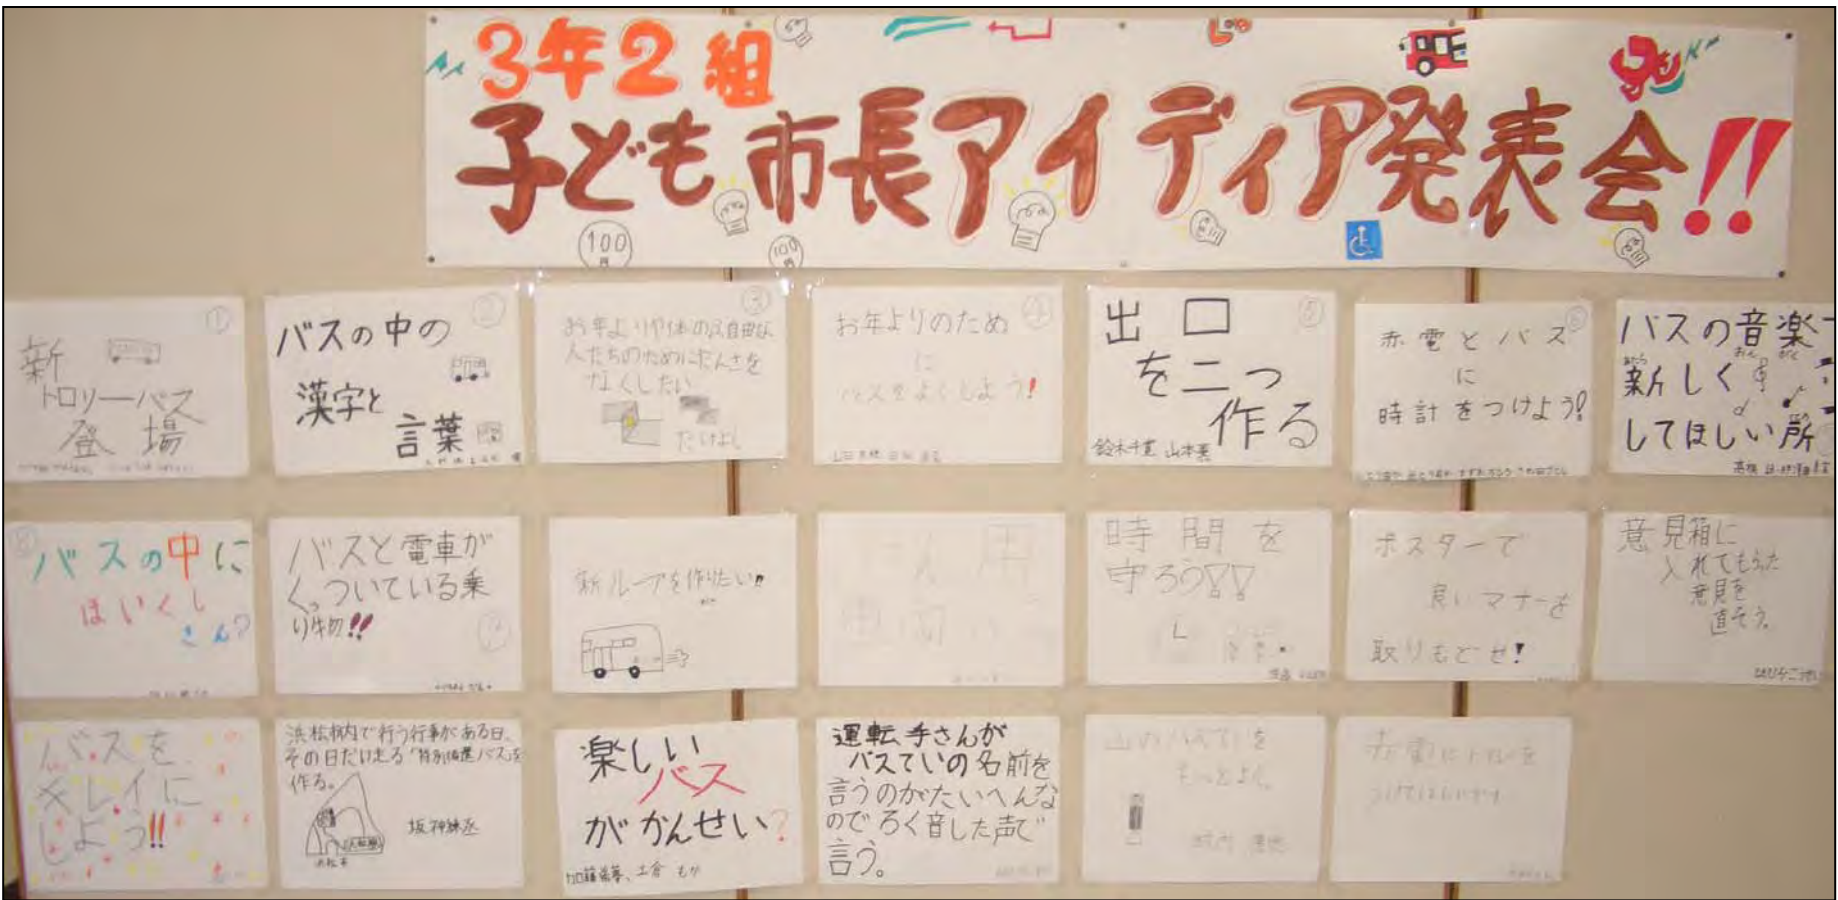 3年2組
子ども市長アイディア発表会!!
100
円
100
円
①
新
トロリーバス
登場
②
バスの中の
漢字と
言葉
③
お年よりや体の不自由な
人たちのためにだんさを
なくしたい
④
お年よりのため
に
バスをよくしよう!
⑤
出口
を二つ
作る
鈴木千寛 山本
⑥
赤電とバス
に
時計をつけよう!
バスの音楽
おん がく
あたら
新しく
してほしい所
バスの中に
ほいくし
さん?
バスと電車が
くっついている乗
り物!!
新ループを作りたい!!
時間を
守ろう!!
ポスターで
良いマナーを
取りもどせ!
意見箱に
入れてもらった
意見を
直そう。
バスを
キレイに
しよう!!
浜松市内で行う行事がある日、
その日だけ走る
作る。
浜松市
楽しい
バス
がかんせい?
運転手さんが
バスていの名前を
言うのがたいへんな
のでろく音した声で
言う。
山のバスていを
もっとよく。